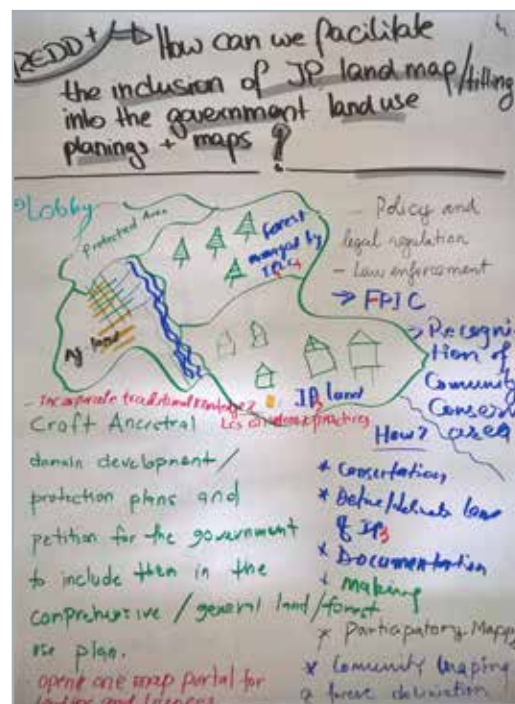 REDD+
How can we facilitate
the inclusion of IP land map/titling
into the government land use
planings + maps ?
Lobby
Protected Area
Forest
managed by
Ag land
IP land
- Policy and
legal regulation
- Law enforcement
FPIC
Recogni
tion of
Comunity
Conserv
area
- Incorporate traditional
Craft Ancestral
domain development/
protection plans and
petition for the government
to include them in the
comprehensive / general land/forest
use plan.
opene one map portal for
How?
* Consertation
* Define/delineate land
of IPs
* Documentation
+ making
* Participatory Mapp
* Comunity Mapping
forest